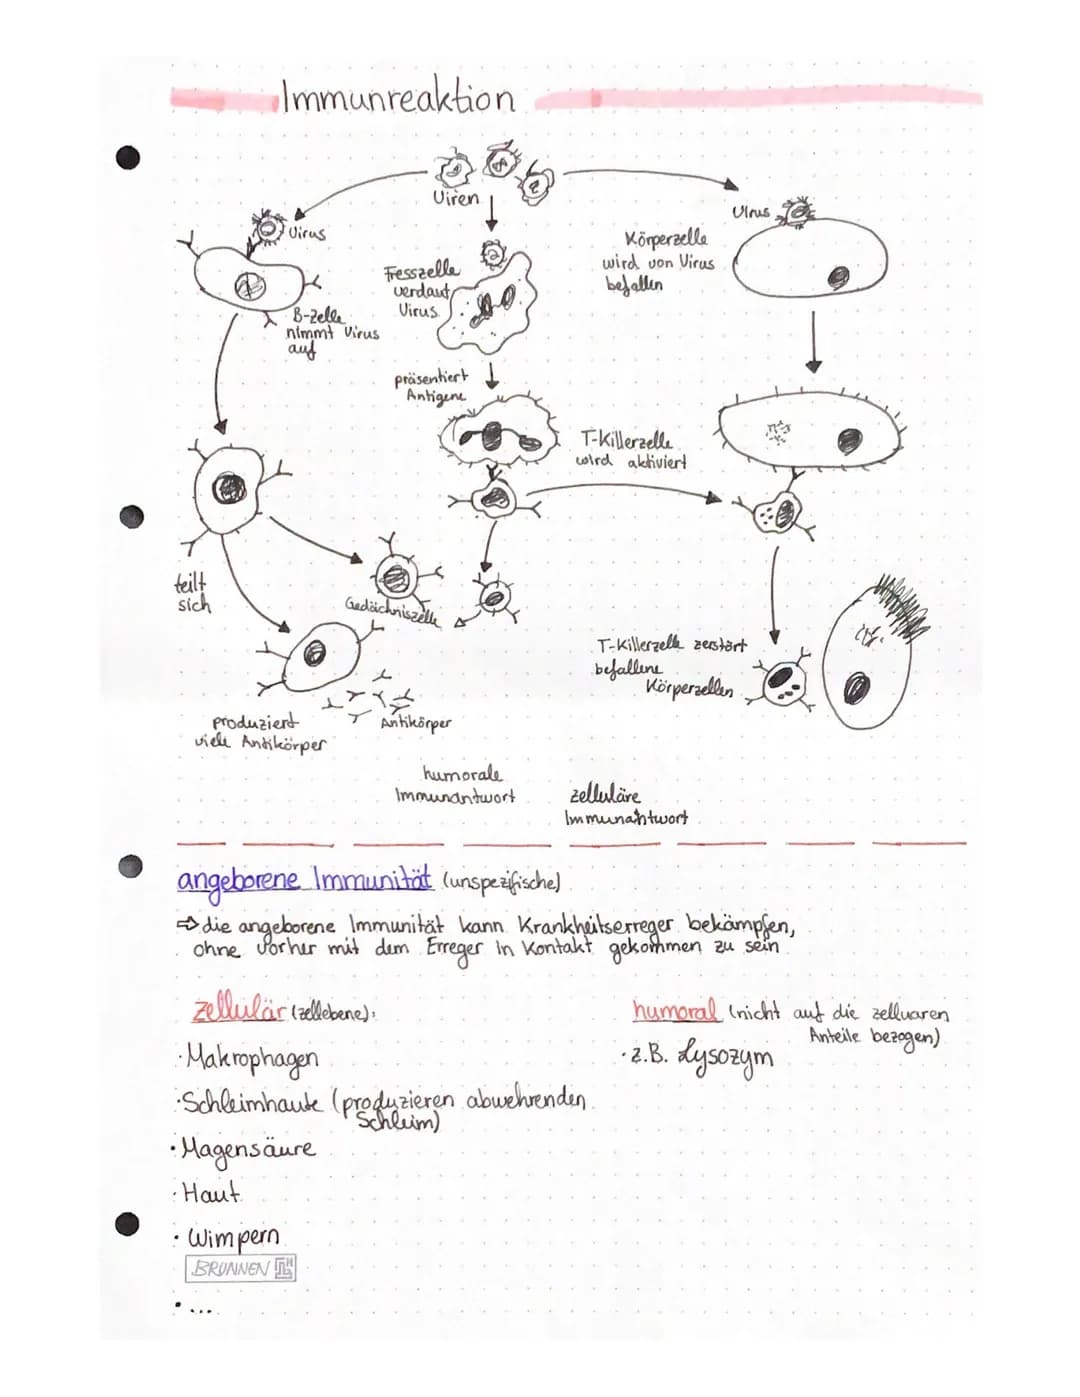 Immunreaktion
Viren
Virus
Virus
Körperzelle
wird von Virus
befallen
Fresszelle
verdaut
Virus
B-Zelle
nimmt Virus
auf
präsentiert
Antigene
T-Killerzelle
wird aktiviert
teilt
sich
Gedächniszelle
T-Killerzelle zerstört
befallene
Körperzellen
produziert
viele Antikörper
Antikörper
humorale
Immunantwort
zelluläre
Immunantwort
angeborene Immunität (unspezifische)
⇨ die angeborene Immunität kann Krankheitserreger bekämpfen,
ohne vorher mit dem Erreger in Kontakt gekommen zu sein
zellulär (zellebene):
· Makrophagen
· Schleimhaute (produzieren abwehrenden
Schleim)
· Magensäure
· Haut
· Wimpern
BRUNNEN
· ...
humoral (nicht auf die zelluaren
Anteile bezogen)
· z.B. Lysozym